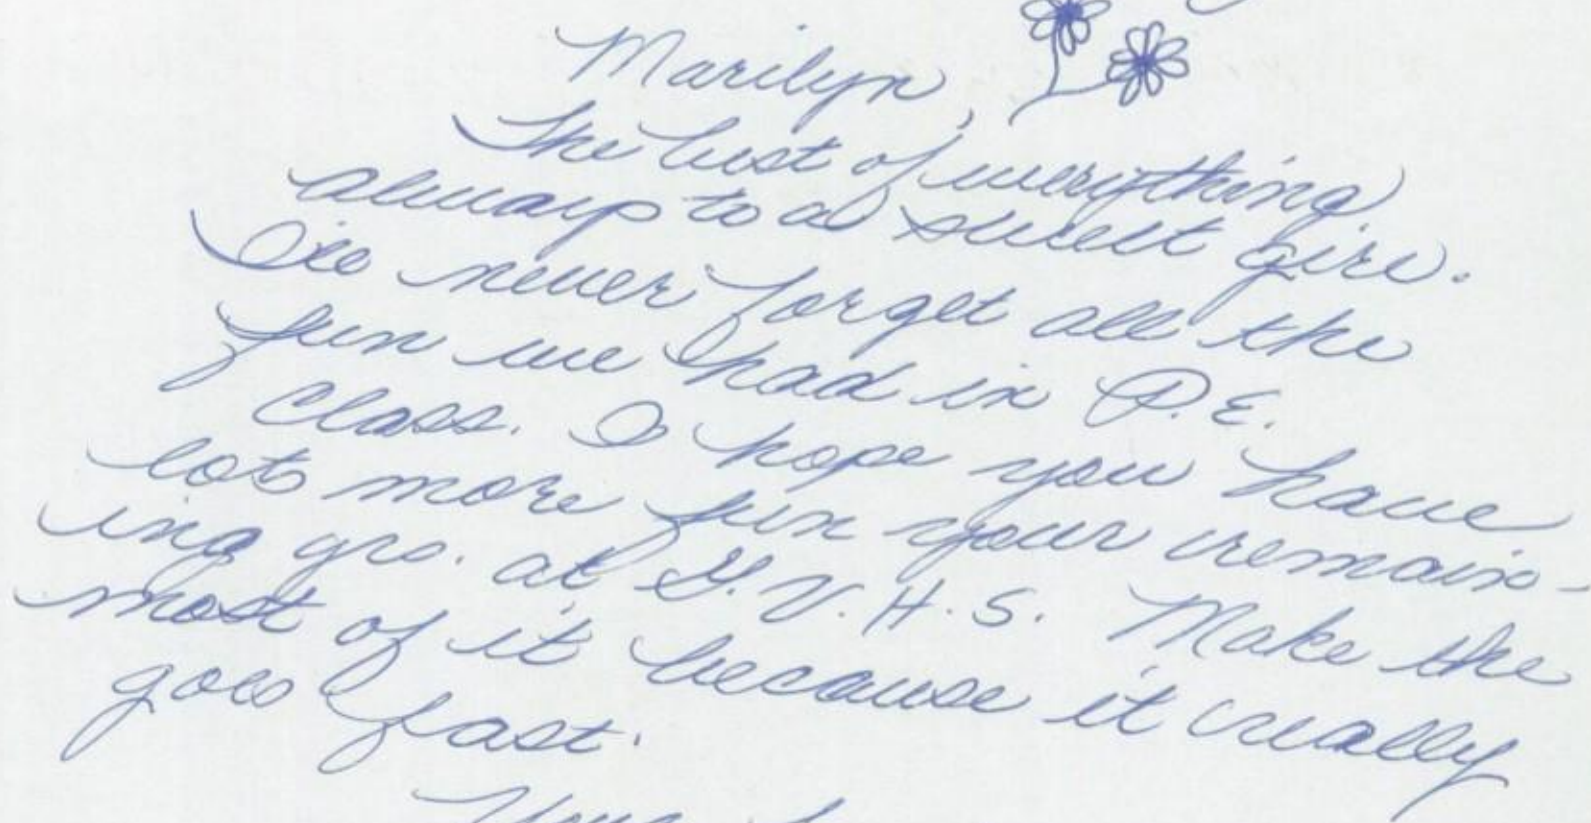 Marilyn,
The best of everything
always to a sweet girl.
I'll never forget all the
fun we had in P.E.
class. I hope you have
lots more fun your remain-
ing yrs. at G.V.H.S. Make the
most of it because it really
goes fast.